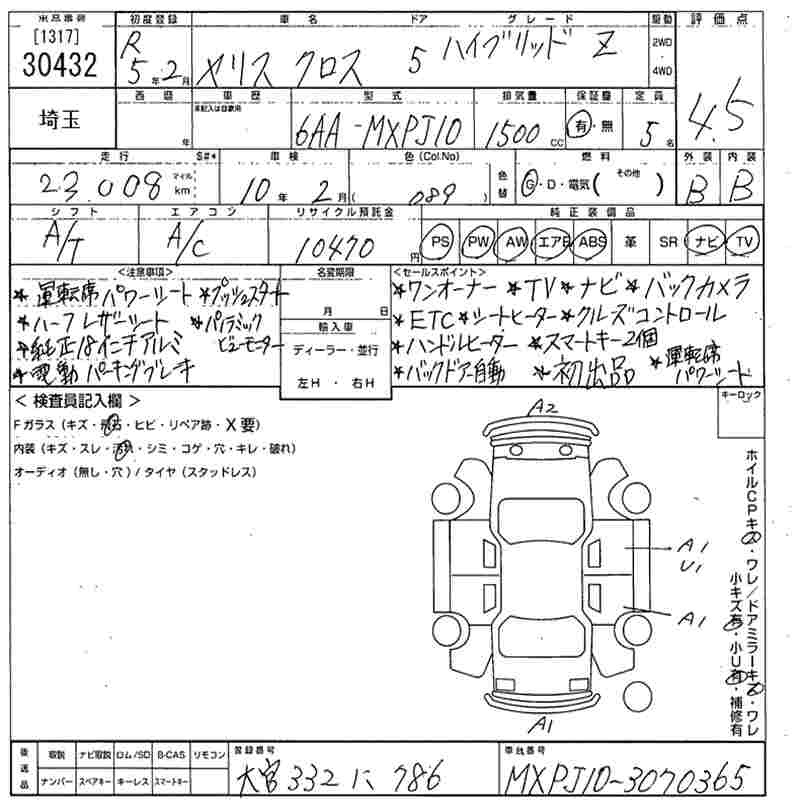 東品番号 初度登録 車名 ドア グレード 駆動 評価点
[1317] 30432 R 5年2月 ヤリスクロス 5 ハイブリッド Z 2WD・4WD 4.5
埼玉 西暦 年 車歴 未記入は自家用 型式 6AA-MXPJ10 排気量 1500cc 保証書 有・無 定員 5名
走行 23,008 マイル km S#* 車検 10年2月 色(Col.No) 089 色替 燃料 G・D・電気( その他 ) 外装 B 内装 B
シフト A/T エアコン A/C リサイクル預託金 10470円 純正装備品 PS PW AW エアB ABS 革 SR ナビ TV
<注意事項>
★運転席パワーシート ★プッシュスタート
★ハーフレザーシート ★パノラミック
★純正18インチアルミ ビューモニター
★電動パーキングブレーキ
名変期限
月 日
輸入車
ディーラー・並行
左H・右H
<セールスポイント>
★ワンオーナー ★TV ★ナビ ★バックカメラ
★ETC ★シートヒーター ★クルーズコントロール
★ハンドルヒーター ★スマートキー2個
★バックドア自動 ★初出品 ★運転席
パワーシート
キーロック
<検査員記入欄>
Fガラス(キズ・飛石・ヒビ・リペア跡・X要)
内装(キズ・スレ・汚れ・シミ・コゲ・穴・キレ・破れ)
オーディオ(無し・穴)/タイヤ(スタッドレス)
A2
A1
U1
A1
A1
ホイルCPキズ・ワレ/ドアミラーキズ・ワレ
小キズ有・小U有・補修有
後送品 取説 ナビ取説 ロム/SD B-CAS リモコン
ナンバー スペアキー キーレス スマートキー
登録番号 大宮 332 に 786
車台番号 MXPJ10-3070365